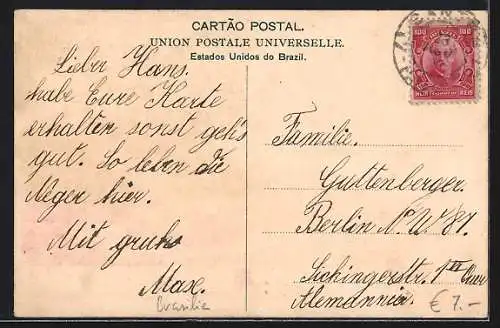 CARTÃO POSTAL.
UNION POSTALE UNIVERSELLE.
Estados Unidos do Brazil.
Lieber Hans.
habe Eure Karte
erhalten sonst geh's
gut. So leben die
Neger hier.
Mit gruß
Max.
Brasilia
100 100
REIS
Familie.
Guttenberger.
Berlin N.W 87.
Sickingerstr. 1
Alemannia.
€ 7.-